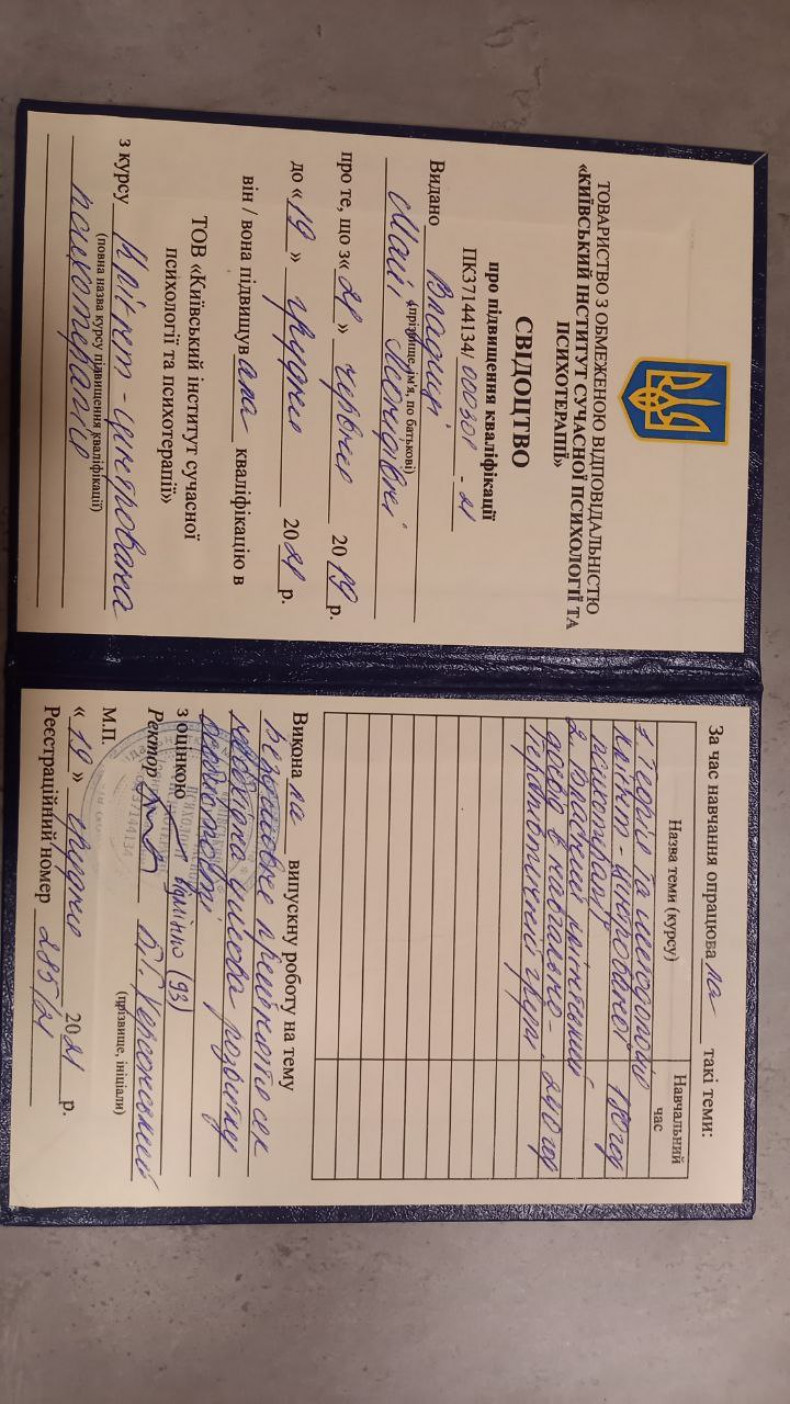 ТОВАРИСТВО З ОБМЕЖЕНОЮ ВІДПОВІДАЛЬНІСТЮ
«КИЇВСЬКИЙ ІНСТИТУТ СУЧАСНОЇ ПСИХОЛОГІЇ ТА
ПСИХОТЕРАПІЇ»
СВІДОЦТВО
про підвищення кваліфікації
ПК37144134/ 000301 - 21
Видано
(прізвище, ім'я, по батькові)
Майї Леонідівні
про те, що з« 21 » червня 20 19 р.
до « 19 » грудня 20 21 р.
він / вона підвищув ала кваліфікацію в
ТОВ «Київський інститут сучасної
психології та психотерапії»
з курсу Клієнт - центрована
(повна назва курсу підвищення кваліфікації)
психотерапія
За час навчання опрацюва ла такі теми:
Назва теми (курсу)
Навчальний
час
1. Теорія та методологія
клієнт - центрованої 180 год
психотерапії
2. Власний клієнтський
досвід в навчально- 240 год
терапевтичній групі
Викона ла випускну роботу на тему
Безумовне прийняття як
необхідна умова розвитку
особистості
з оцінкою відмінно (93)
Ректор
(прізвище, ініціали)
М.П.
« 19 » грудня 20 21 р.
Реєстраційний номер 285/21